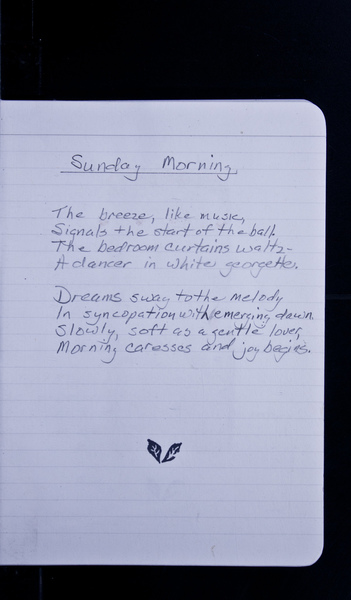 Sunday Morning
The breeze, like music,
Signals the start of the ball.
The bedroom curtains waltz-
A dancer in white georgette.
Dreams sway to the melody
In syncopation with emerging dawn.
Slowly, soft as a gentle lover,
Morning caresses and joy begins.